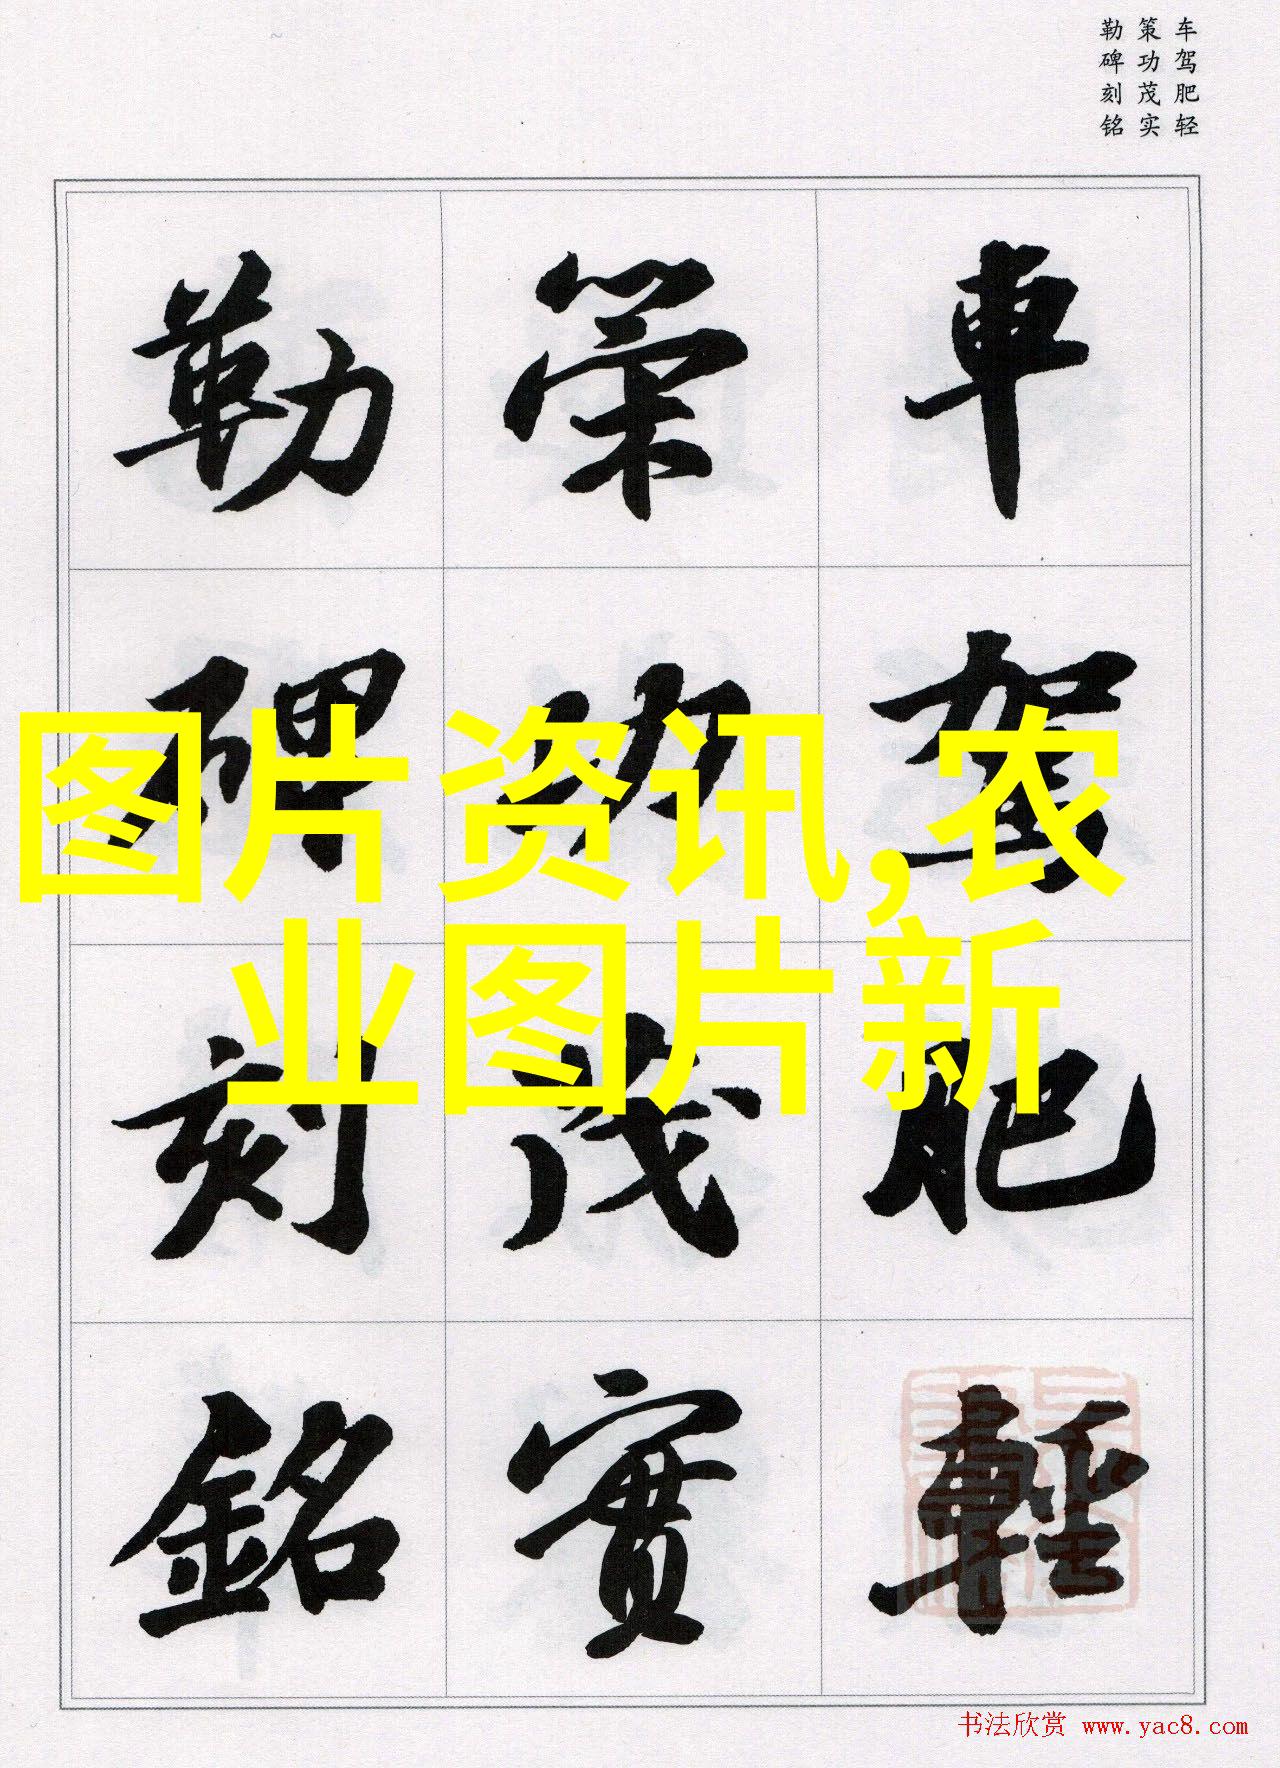 车驾肥轻
策功茂实
勒碑刻铭
車駕肥輕
策功茂實
勒碑刻銘
图片资讯,农
业图片新
书法欣赏 www.yac8.com